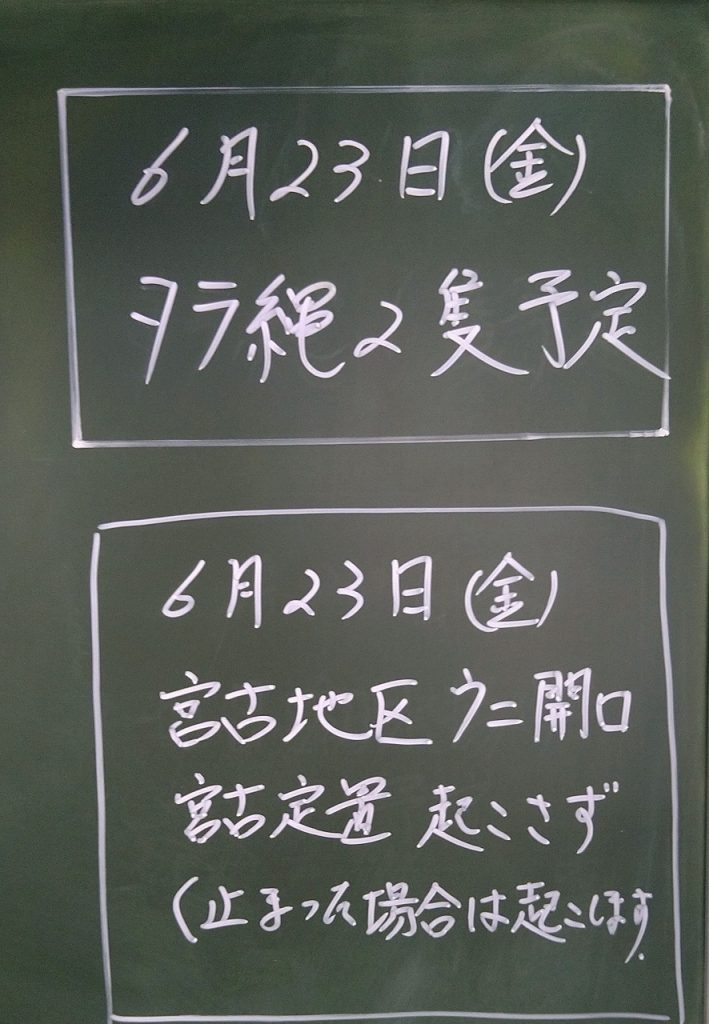 6月23日(金)
タラ縄2隻予定
6月23日(金)
宮古地区 ウニ開口
宮古定置 起こさず
(止まった場合は起こします